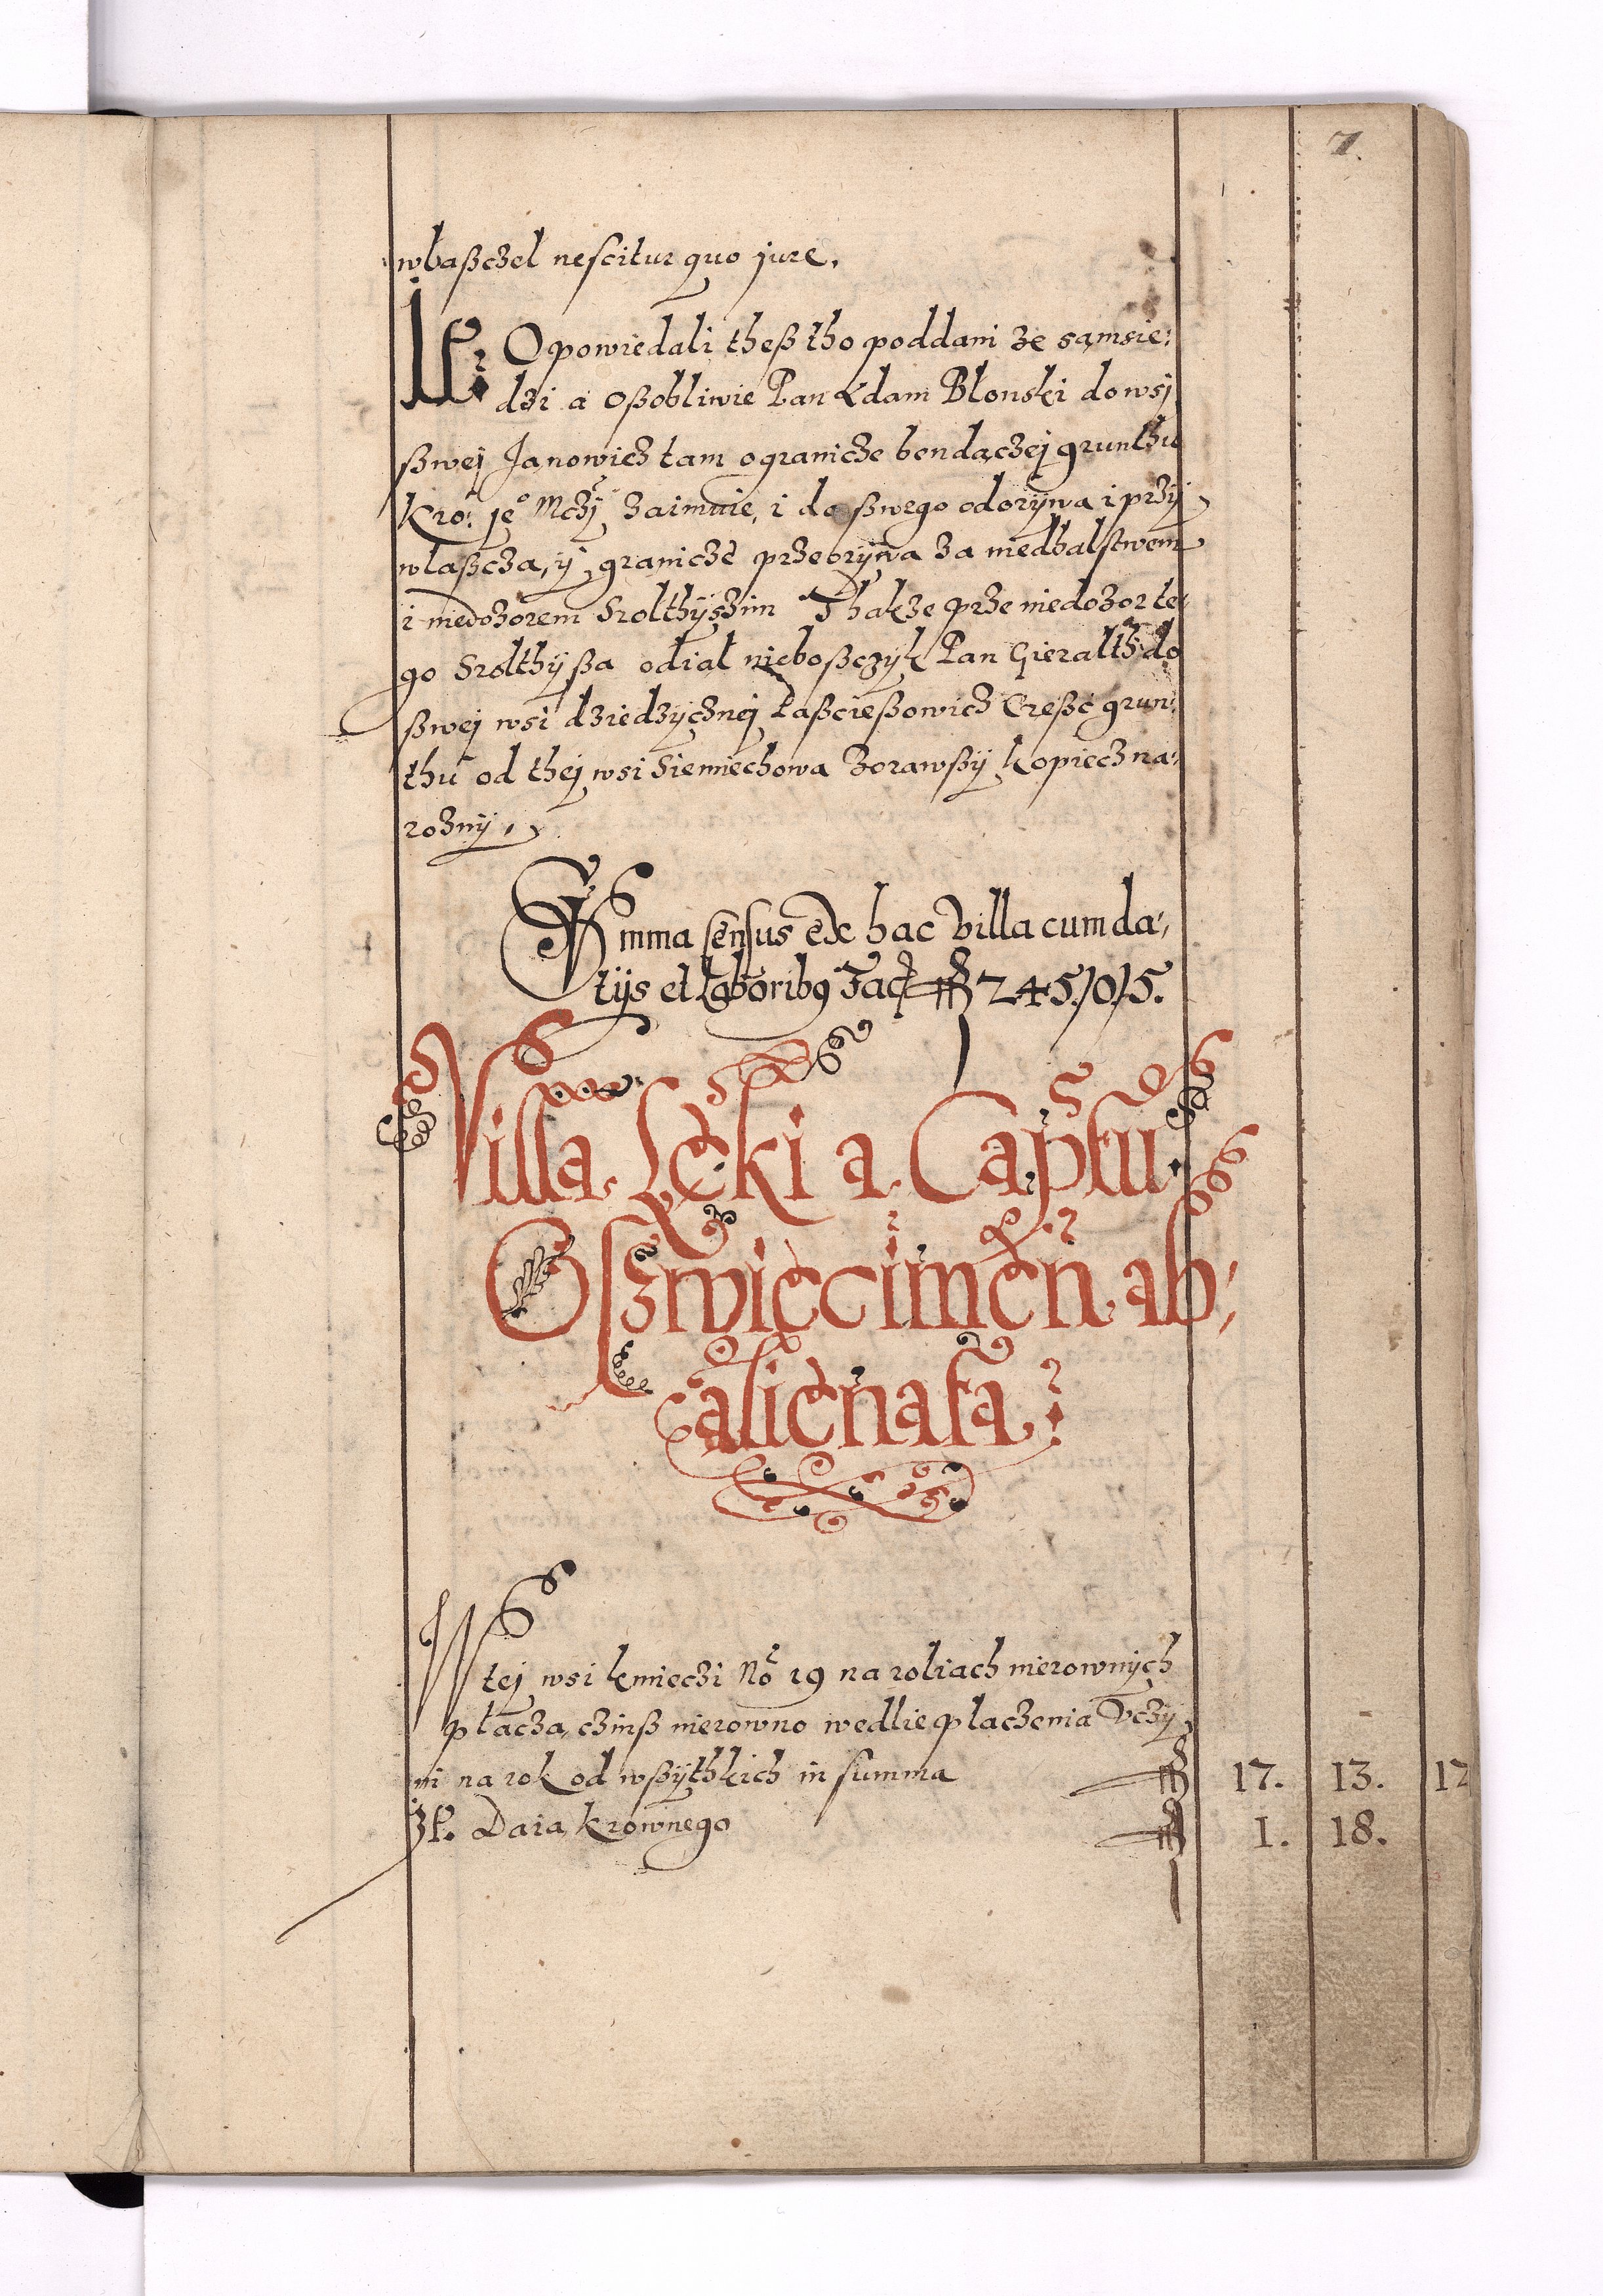 7.
wlaßczel nescitur quo jure.
It: Opowiedali theß tho poddani ze sąmsie:
dzi a oßobliwie Pan Adam Blonski do wsi
ßwej Janowicz tam o granicze bendączej grunthu
Kro: Je° Mczi zaimuie, i do ßwego odorÿwa i przÿ
wlaßcza, ÿ granicze przeorÿwa za niedbalstwem
i niedozorem Szolthÿszim Thakze prze niedozor te
go Szolthÿßa odial nieboßczÿk Pan Gieralth do
ßwej wsi dziedzÿcznej Laßcießowicz Czeßć grun:
thu od thej wsi Siemiechowa zorawßÿ kopiecz na:
roznÿ.
Summa sensus ex hac villa cum da,
tijs et laboribus Fac 245/0/5.
Villa Łęki a Captu
Oszwiecimen. ab,
alienata.
W tej wsi kmieczi No 19 na roliach nierownÿch
płaczą czinß nierowno wedlie płaczenia Vczÿ
ni na rok od wßÿthkich in summa 17. 13. 12
It. Daią krownego 1. 18.